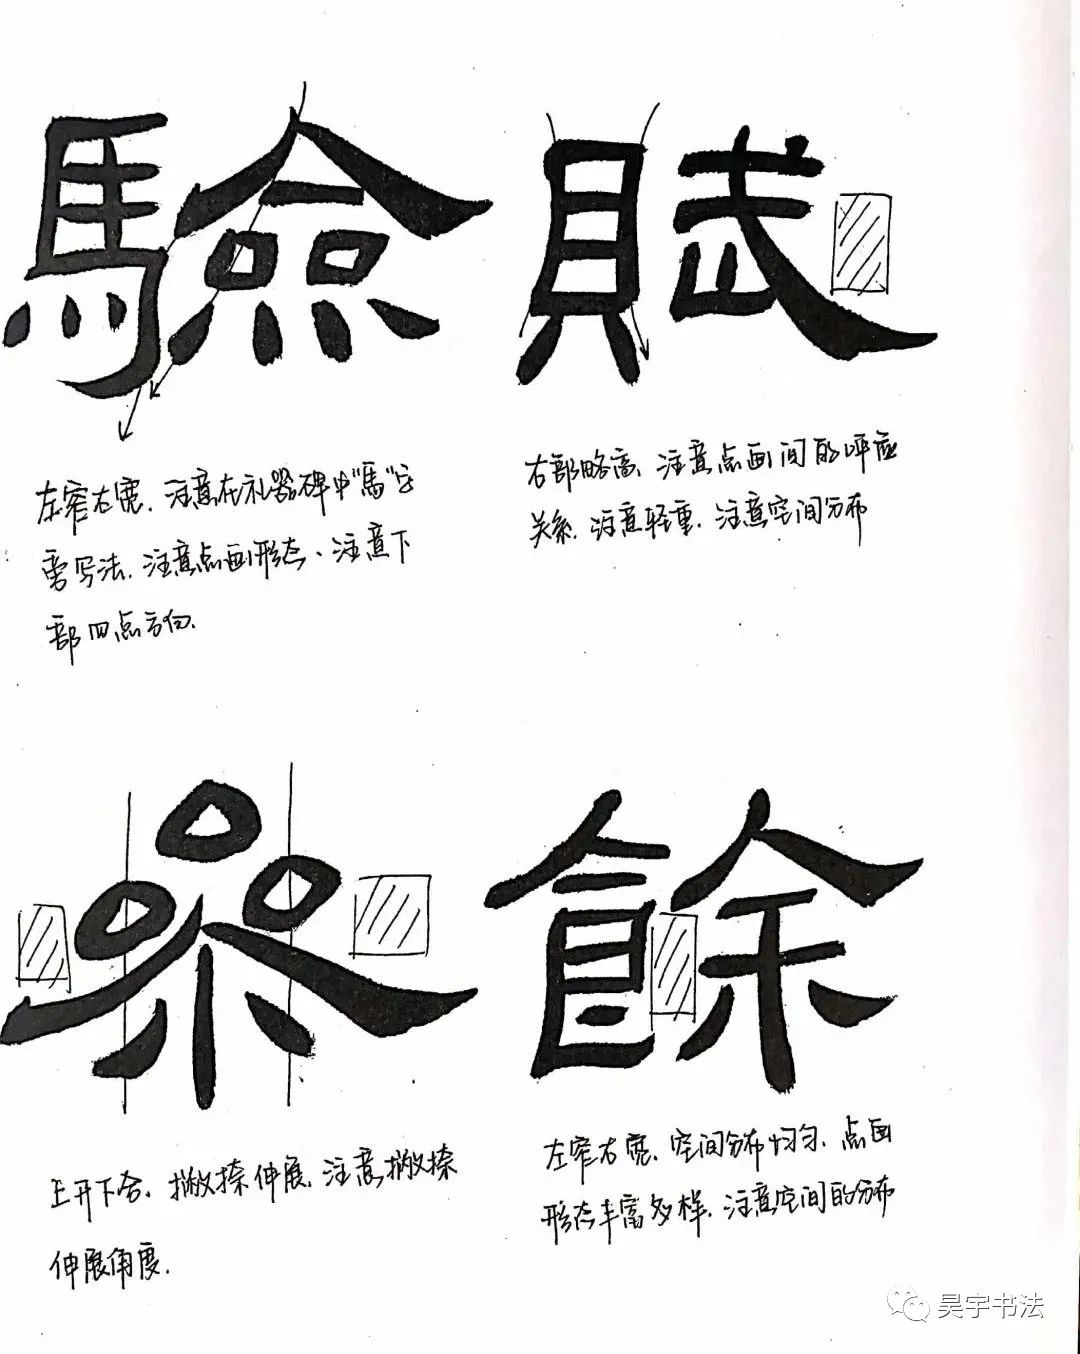 驗
左窄右宽,注意在礼器碑中"馬"字
旁写法,注意点画形态、注意下
部四点方向.
賦
右部略高,注意点画间的呼应
关系,注意轻重,注意空间分布
參
上开下合,撇捺伸展,注意撇捺
伸展角度.
餘
左窄右宽,空间分布均匀,点画
形态丰富多样,注意空间的分布
昊宇书法